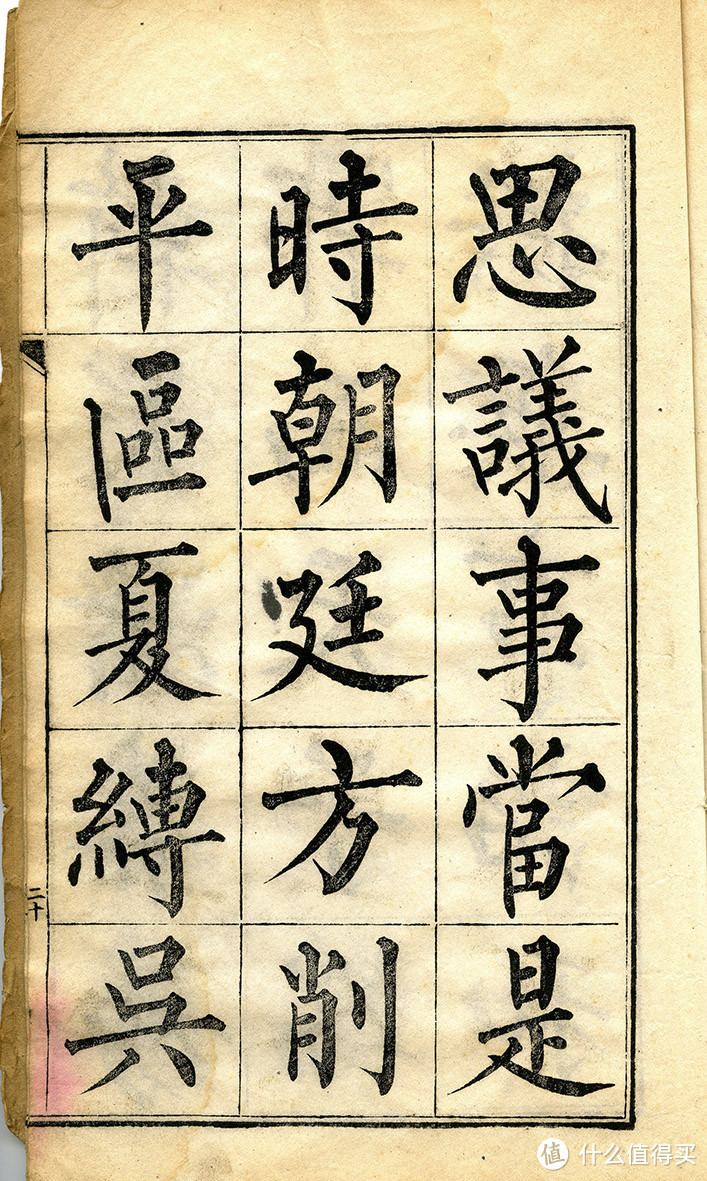 思議事當是
時朝廷方削
平區夏縛吳
二十
值 什么值得买